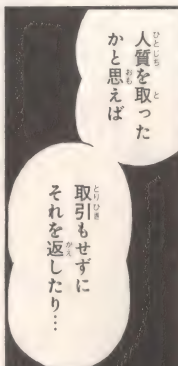 人質を取った
かと思えば
取引もせずに
それを返したり…